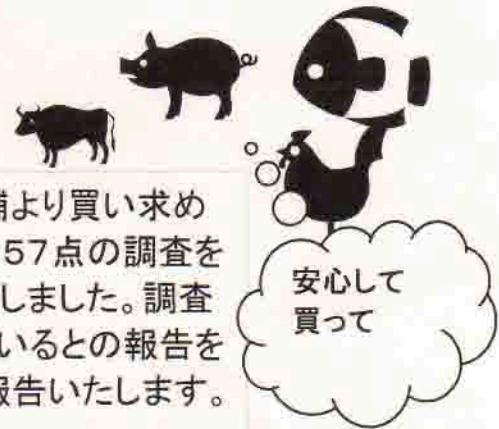 舗より買い求め
57点の調査を
しました。調査
いるとの報告を
報告いたします。
安心して
買って